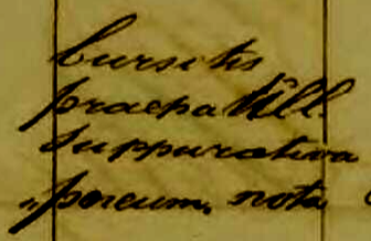 bursitis
praepatill.
suppurativa
"pneum. nota